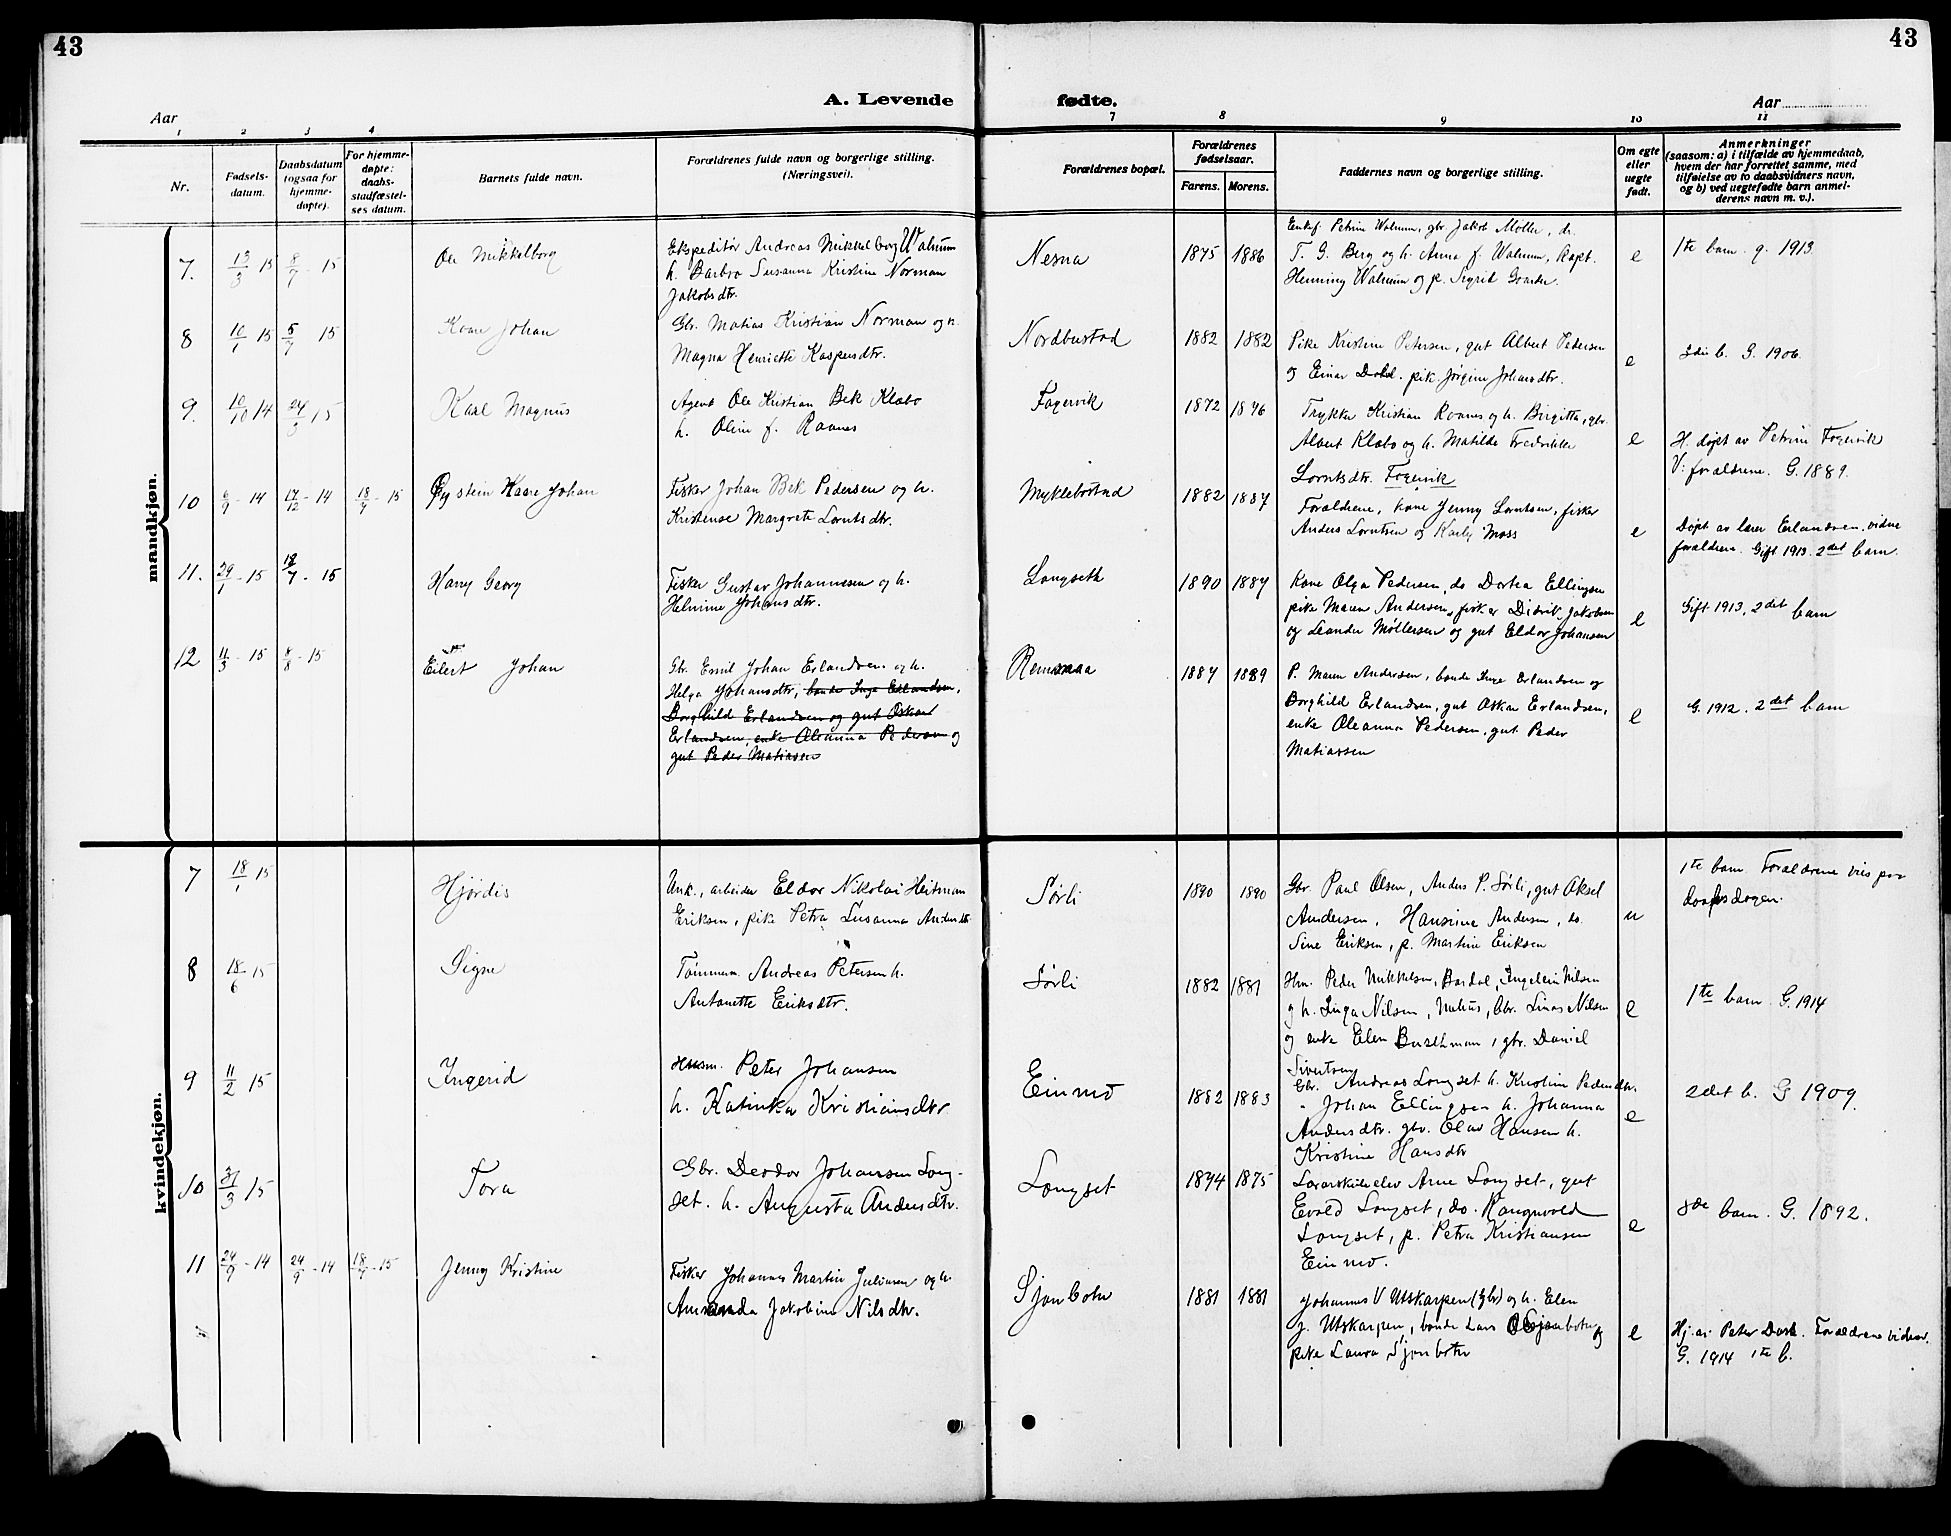 43
43
A. Levende
fødte.
Aar
Aar
1 2 3 4 7 8 9 10 11
Nr.
Fødsels-
datum.
Daabsdatum
(ogsaa for
hjemme-
døpte).
For hjemme-
døpte:
daabs-
stadfæstel-
ses datum.
Barnets fulde navn.
Forældrenes fulde navn og borgerlige stilling.
(Næringsvei).
Forældrenes bopæl.
Forældrenes
fødselsaar.
Farens. Morens.
Faddernes navn og borgerlige stilling.
Om egte
eller
uegte
født.
Anmerkninger
(saasom: a) i tilfælde av hjemmedaab,
hvem der har forrettet samme, med
tilføielse av to daabsvidners navn,
og b) ved uegtefødte barn anmel-
derens navn m. v.).
mandkjøn.
7. 13/3 15 8/7 - 15
Ole Mikkelborg
Ekspeditør Andreas Mikkelborg Walnum
h. Barbro Susanna Kristine Norman
Jakobsdtr.
Nesna
1875 1886
Petrine Walnum, gbr. Jakob Møller, dr.
T. G. Berg og h. Anna f. Walnum, Kapt.
Henning Walnum og p. Sigrid
e
1te barn. g. 1913.
8 10/1 15 5/7 15
Kaare Johan
Gbr. Matias Kristian Norman og h.
Magna Henriette Kaspersdtr.
Nordbustad
1882 1882
Pike Kristine Petersen, gut Albert Pedersen
og Einar Dahl. pik. Jørgine Johansdtr.
e
b. G. 1906.
9. 10/10 14 24/5 15
Karl Magnus
Agent Ole Kristian Bek Klæbo
h. Oline f. Raanes
Fagervik
1872 1876
Trykker Kristian Raanes og h. Birgitta, gbr.
Albert Klæbo og h. Matilde Fredrikke
Lorntsdtr. Fagervik
e
H. døpt av Petrine Fagervik
V: forældrene. G. 1889.
10 6/9 - 14 17/12 - 14 18/7 - 15
Øystein Kaare Johan
Fisker Johan Bek Pedersen og h.
Kristense Margrete Lorntsdtr.
Myklebostad
1882 1887
Forældrene, kone Jenny Lorntsen, fisker
Anders Lorntsen og Karly Moss
e
Døpt av lærer Erlandsen. vidne
forældrene. Gift 1913. 2det barn.
11. 29/1 - 15 18/7 - 15
Harry Georg
Fisker Gustav Johannesen og h.
Helmine Johansdtr.
Langseth
1890 1887
Kone Olga Pedersen, do Dortea Ellingsen
pike Maren Andersen, fisker Didrik Jakobsen
og Leander Møllersen og gut Eldor Johansen
e
Gift 1913, 2det barn
12 11/3 - 15 8/8 - 15
Eilert Johan
Gbr. Emil Johan Erlandsen og h.
Helga Johansdtr, bonde Inge Erlandsen,
Borghild Erlandsen og gut Oskar
Erlandsen, enke Oleanna Pedersen og
gut Peder Matiasen
Remmaa
1887 1889
P. Maren Andersen, bonde Inge Erlandsen og
Borghild Erlandsen, gut Oskar Erlandsen,
enke Oleanna Pedersen, gut Peder
Matiassen
e
G. 1912. 2det barn
kvindekjøn.
7 18/1 15
Hjørdis
Unk., arbeider Eldor Nikolai Heitman
Eriksen, pike Petra Susanna Andersdtr.
Sørli
1890 1890
Gbr. Paul Olsen, Anders P. Sørli, gut Aksel
Andersen, Hansine Andersen, do.
Sine Eriksen, p. Martine Eriksen
u
1te barn Forældrene vies paa
daapsdagen.
8 18/6 15
Signe
Tømmerm. Andreas Petersen h.
Antonette Eriksdtr.
Sørli
1882 1881
Hm. Peder Mikkelsen, Bardal, Ingelein Nilsen
og h. Inga Nilsen, Gbr. Linas Nilsen
og enke Elen Buschman, gbr. Daniel
Sivertsen
e
1te barn. G. 1914
9 11/2 15
Ingerid
Husm. Peter Johansen
h. Katinka Kristiansdtr
Einmo
1882 1883
Gbr. Andreas Langset h. Kristine Pedersdtr.
" Johan Ellingsen h. Johanna
Andersdtr. gbr. Olav Hansen h.
Kristine Hansdtr
e
2det b. G 1909.
10 31/3 15
Tora
Gbr. Deodor Johansen Lang-
set. h. Augusta Andersdtr.
Langset
1874 1875
Lærerskoleelev Arne Langset, gut
Evald Langset, do. Rangvald
Langset, p. Petra Kristiansen
Einmo.
e
8de barn. G. 1892.
11 24/9 - 14 24/9 - 14 18/7 - 15
Jenny Kristine
Fisker Johannes Martin Juliusen og h.
Amanda Jakobine Nilsdtr.
Sjonbotn
1881 1881
Johannes V Utskarpen (Gbr) og h. Elen
J. Utskarpen, bonde Lars O Sjonbotn og
pike Laura Sjonbotn
e
Hj. av Peter Dahl. Forældrene vidner.
G. 1914 1te b.